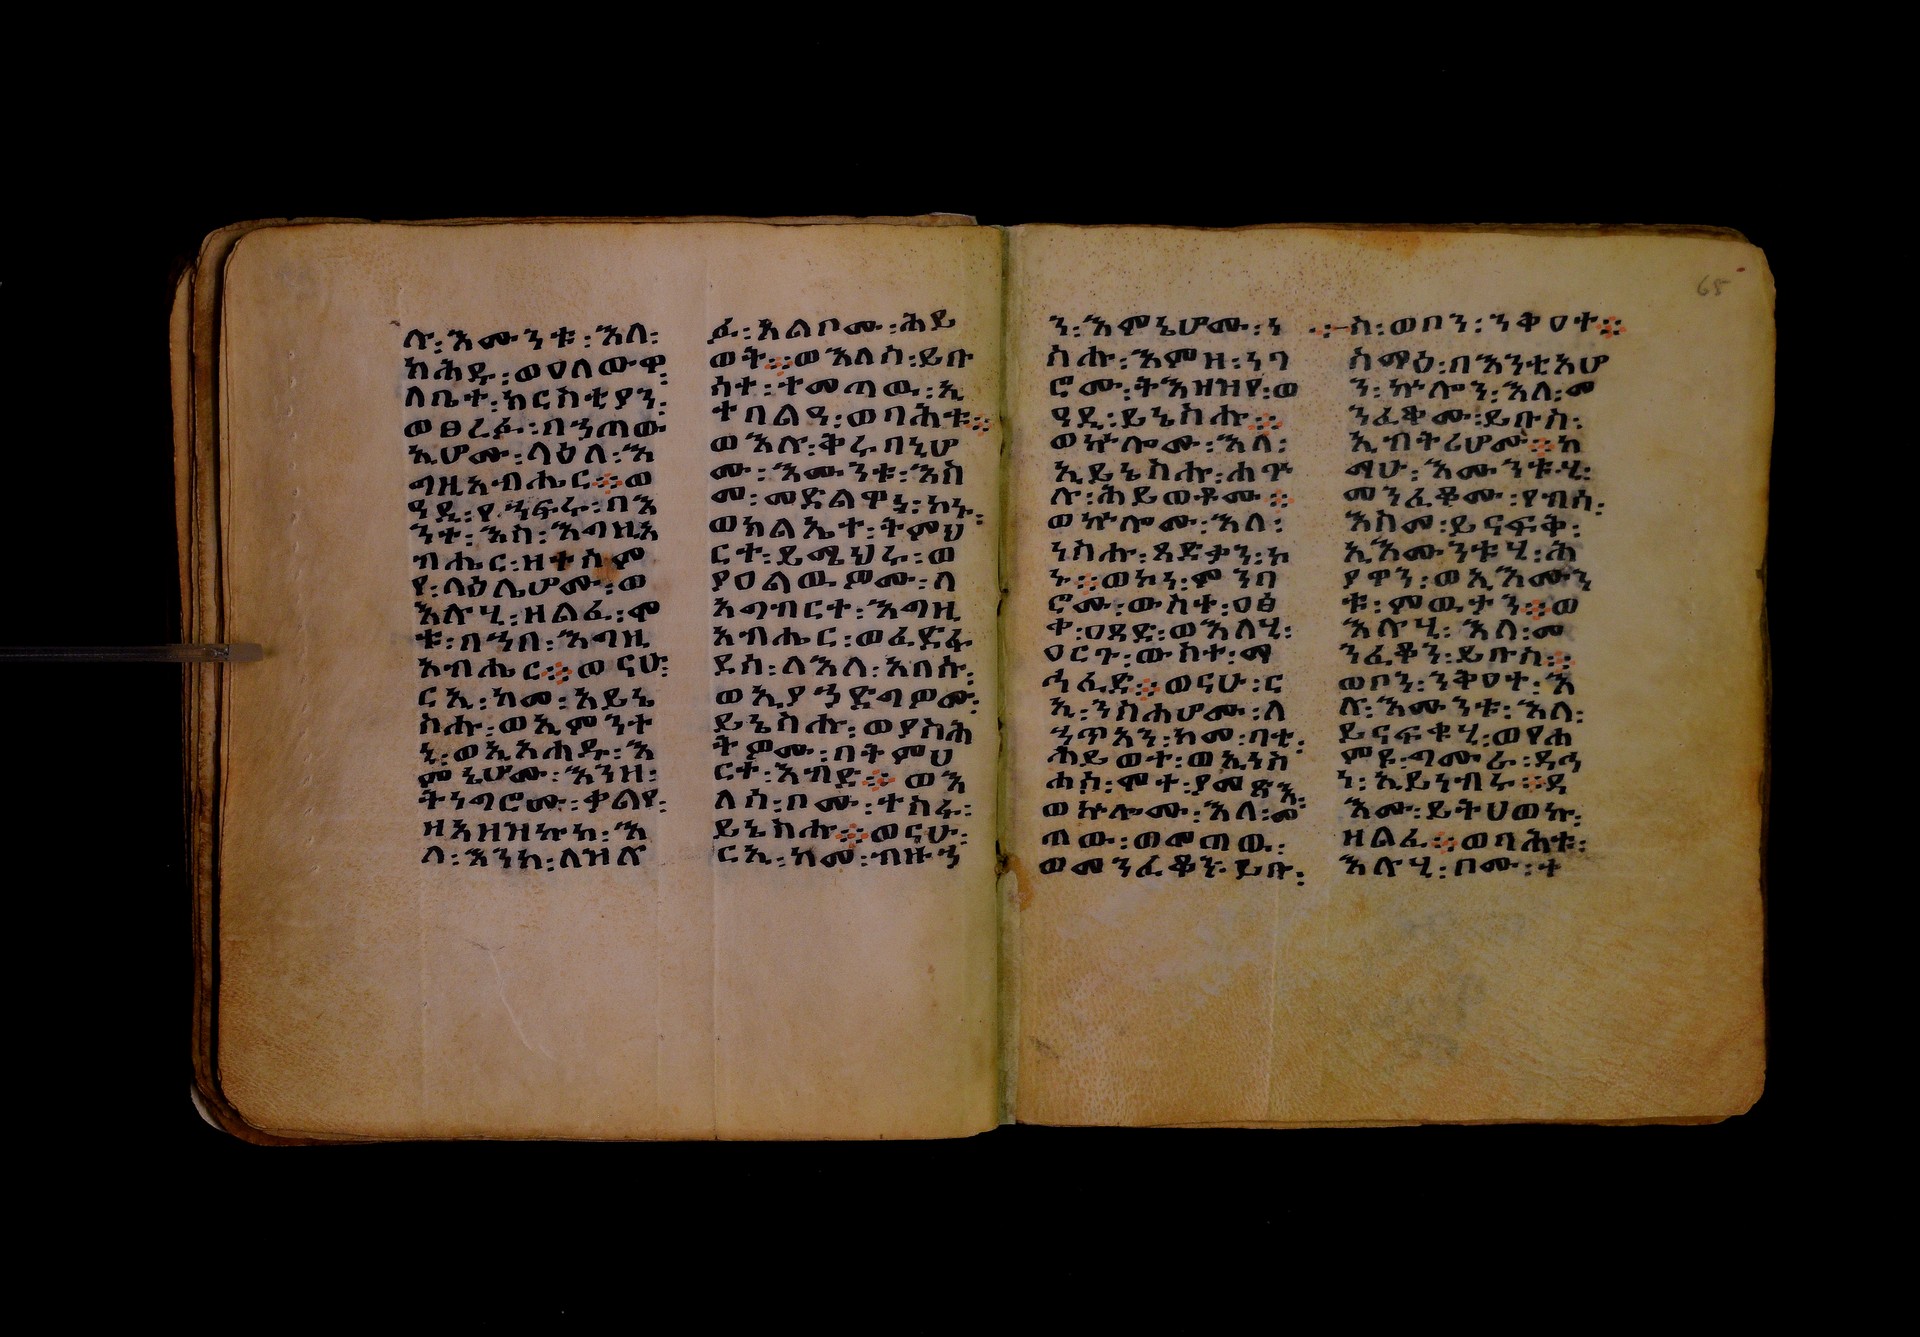 ሉ፡እሙንቱ፡እለ፡
ክሕዱ፡ወዐለውዋ፡
ለቤተ፡ክርስቲያን፡
ወፅረፉ፡በኀጣው
ኢሆሙ፡ላዕለ፡እ
ግዚአብሔር፨ወ
ዓዲ፡የኀፍሩ፡በእ
ንተ፡እስ፡እግዚአ
ብሔር፡ዘተሰም
የ፡ላዕሌሆሙ፡ወ
እሉሂ፡ዘልፈ፡ሞ
ቱ፡በኀበ፡እግዚ
አብሔር፨ወናሁ፡
ርኢ፡ከመ፡አይኔ
ስሑ፡ወኢምንተ
ኒ፡ወኢአሐዱ፡እ
ምኔሆሙ፡እንዘ፡
ትነግሮሙ፡ቃልየ፡
ዘአዘዝኩከ፡እ
ለ፡እንከ፡ለዝሉ
ፉ፡አልቦሙ፡ሕይ
ወት፨ወእለሰ፡ይቡ
ሳተ፡ተመጣዉ፡ኢ
ተበልዓ፡ወባሕቱ፨
ወእሉ፡ቅሩባኒሆ
ሙ፡እሙንቱ፡እስ
መ፡መድልዋነ፡ኮኑ፡
ወክልኤተ፡ትምህ
ርተ፡ይሜህሩ፡ወ
ያዐልዉዎሙ፡ለ
አግብርተ፡እግዚ
አብሔር፡ወፈድፋ
ደሰ፡ለእለ፡አበሱ፡
ወኢያኀድግዎሙ፡
ይኔስሑ፡ወያስሕ
ትዎሙ፡በትምህ
ርተ፡እብድ፨ወእ
ለሰ፡ቦሙ፡ተስፋ፡
ይኔስሑ፨ወናሁ፡
ርኢ፡ከመ፡ብዙኅ
ን፡እምኔሆሙ፡ነ
ስሑ፡እምዘ፡ነባ
ሮሙ፡ትእዘዝየ፡ወ
ዓዲ፡ይኔስሑ፨
ወኵሎሙ፡እለ፡
ኢይኔስሑ፡ሐጕ
ሉ፡ሕይወቶሙ፨
ወኵሎሙ፡እለ፡
ነስሑ፡ጻድቃን፡ኮ
ኑ፨ወኮነ፡ምንባ
ሮሙ፡ውስተ፡ዐፅ
ቀ፡ዐጸድ፡ወእለሂ፡
ዐርጉ፡ውስተ፡ማ
ኅፈድ፨ወናሁ፡ር
ኢ፡ንስሐሆሙ፡ለ
ኃጥአን፡ከመ፡ባቲ፡
ሕይወተ፡ወኢነስ
ሐሰ፡ሞተ፡ያመጽእ፡
ወኵሎሙ፡እለ፡መ
ጠው፡ወመጣዉ፡
ወመንፈቆን፡ይቡ፡
ስ፡ወቦን፡ንቅዐተ፨
ስማዕ፡በእንቲአሆ
ን፡ኵሎን፡እለ፡መ
ንፈቆሙ፡ይቡስ፡
ኢብትሪሆሙ፨ከ
ማሁ፡እሙንቱሂ፡
መንፈቆሙ፡የብሰ፡
እስመ፡ይናፍቅ፡
ኢእሙንቱሂ፡ሕ
ያዋን፡ወኢእሙን
ቱ፡ምዉታን፨ወ
እሉሂ፡እለ፡መ
ንፈቆን፡ይቡስ፨
ወቦን፡ንቅዐተ፡እ
ሉ፡እሙንቱ፡እለ፡
ይናፍቁሂ፡ወየሐ
ምዩ፡ግሙራ፡ዳኅ
ነ፡ኢይነብሩ፨ዳ
እሙ፡ይትሀወኩ፡
ዘልፈ፨ወባሕቱ፡
እሉሂ፡ቦሙ፡ተ